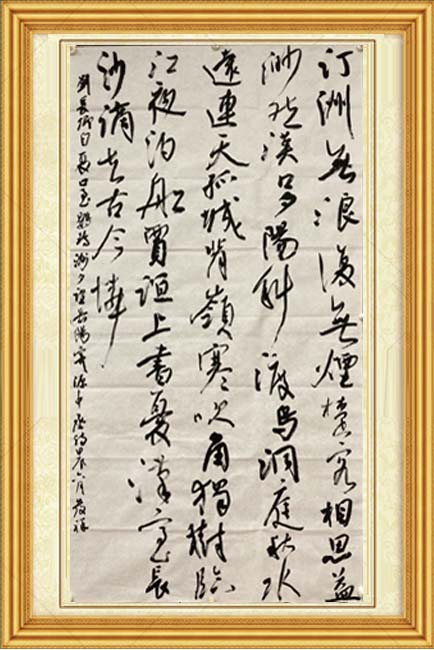 汀洲無浪復無煙楚客相思益
渺然漢口夕陽斜渡鳥洞庭秋水
遠連天孤城背嶺寒吹角獨樹臨
江夜泊船賈誼上書憂漢室長
沙謫去古今憐
劉長卿自夏口至鸚鵡洲夕望岳陽寄源中丞詩甲辰六月